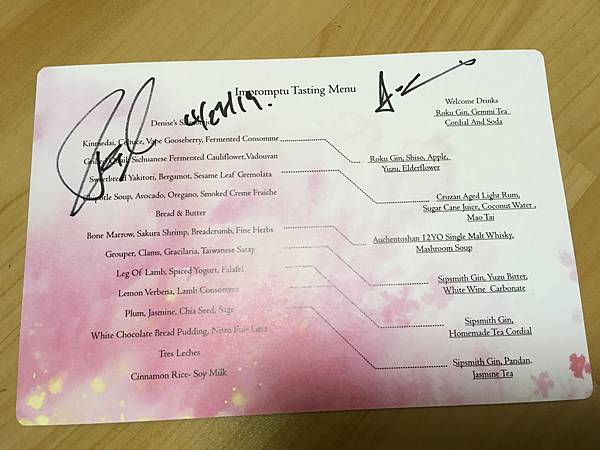 Impromptu Tasting Menu
04/27/19.
Welcome Drinks
Roku Gin, Gemmi Tea
Cordial And Soda
Denise's
Kinmedai, Vape Gooseberry, Fermented Consomme
Roku Gin, Shiso, Apple,
Yuzu, Elderflower
Quail, Sichuanese Fermented Cauliflower,Vadouvan
Sweetbread Yakitori, Bergamot, Sesame Leaf Gremolata
Cruzan Aged Light Rum,
Sugar Cane Juice, Coconut Water ,
Mao Tai
Chipotle Soup, Avocado, Oregano, Smoked Creme Fraiche
Bread & Butter
Bone Marrow, Sakura Shrimp, Breadcrumb, Fine Herbs
Auchentoshan 12YO Single Malt Whisky,
Mashroom Soup
Grouper, Clams, Gracilaria, Taiwanese Satay
Sipsmith Gin, Yuzu Bitter,
White Wine Carbonate
Leg Of Lamb, Spiced Yogurt, Falafel
Lemon Verbena, Lamb Consomme
Sipsmith Gin,
Homemade Tea Cordial
Plum, Jasmine, Chia Seed, Sage
Sipsmith Gin, Pandan,
Jasmine Tea
White Chocolate Bread Pudding, Nitro Foie Gras
Tres Leches
Cinnamon Rice- Soy Milk